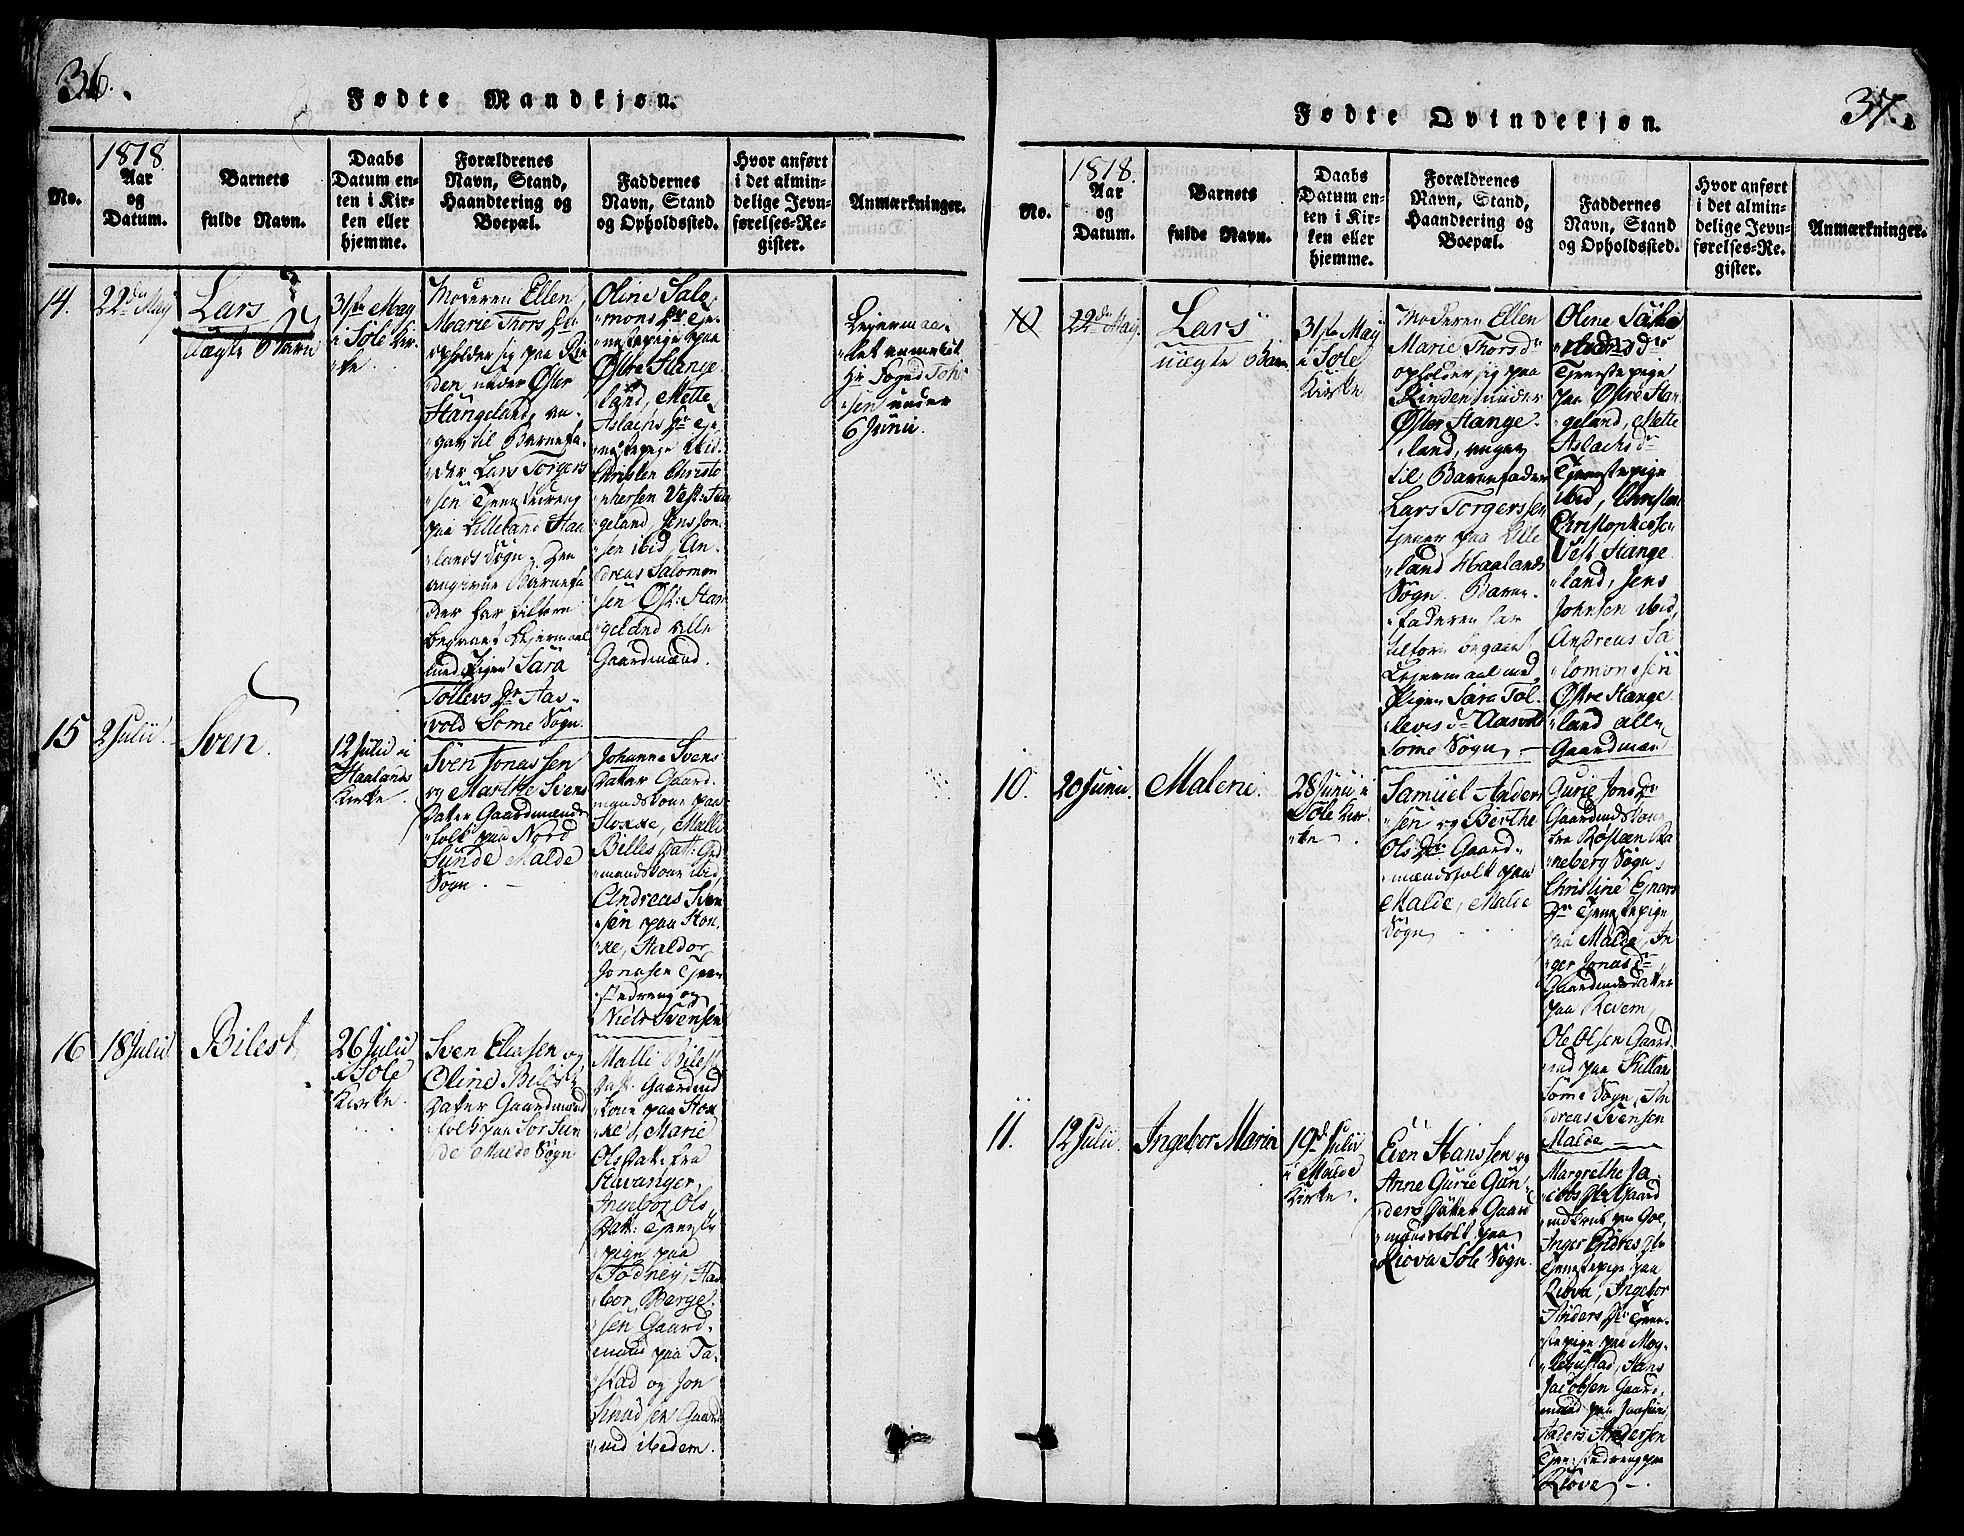 36.
Fødte Mandkjøn.
No.
1818.
Aar
og
Datum.
Barnets
fulde Navn.
Daabs
Datum en-
ten i Kir-
ken eller
hjemme.
Forældrenes
Navn, Stand,
Haandtering og
Boepæl.
Faddernes
Navn, Stand
og Opholdssted.
Hvor anført
i det almin-
delige Jevn-
førelses-Re-
gister.
Anmærkninger.
14.
22de Maij
Lars
uægte Barn
31te May
i Sole Kir-
ke.
Moderen Ellen
Marie Thors Dr
opholder sig paa Rin
den under Øster
Stangeland, an-
gav til Barnefa-
der Lars Torgers
sen Tjenestedreng
paa Lilleland Haa
lands Sogn. Den
angivne Barnefa
der har tilforn
begaaet Lejermaal
med Pigen Sara
Tollevs Dr Aas-
vold Some Sogn.
Oline Salo
mons Dr Tje-
nestepige paa
Østre Stange
land, Mette
Aslachs Dr Tje-
nestepige ibid.
Christen Christo
phersen Vest: Stan
geland, Jens John
sen ibid, An-
dreas Salomon
sen Øst: Stan
geland alle
Gaardmænd.
Lejermaa-
let anmeldt
Hr Foged
under
6 Junii.
15
2 Julii.
Sven.
12 Julii i
Haalands
Kirke.
Sven Jonassen
og Marthe Svens
Datter Gaardmænds
folk paa Nord
Sunde Malde
Sogn.
Johanne Svens
Datter Gaard-
mandskone paa
Stokke, Malli
Billes Dat: Grd
mandskone ibid
Andreas Sven
sen paa Stok
ke, Haldor
Jonasen Tjene
stedreng og
Niels Svensen
16
18 Julii
Bilest
26 Julii
i Sole
Kirke.
Sven Eliasen og
Oline Bilests
Datter Gaardmænd
folk paa Sør Sun
de Malde Sogn
Malli Bilest
Dat. Gaardmd
kone paa Stok
ke, Marie
Ols Dat: fra
Stavanger,
Ingebor Ols
Dat: Tjeneste
pige paa
Todney, Haa
bor Berge
sen Gaard-
mand paa Ta-
stad og Jon
Knudsen Gaard
md ibidem.
37.
Fødte Qvindekjøn.
No.
1818.
Aar
og
Datum.
Barnets
fulde Navn.
Daabs
Datum en-
ten i Kir-
ken eller
hjemme.
Forældrenes
Navn, Stand,
Haandtering og
Boepæl.
Faddernes
Navn, Stand
og Opholdssted.
Hvor anført
i det almin-
delige Jevn-
førelses-Re-
gister.
Anmærkninger.
10
22de Maij
Lars
uægte Barn
31te Maij
i Sole
Kirke
Moderen Ellen
Marie Thors dr
opholder sig paa
Rinden under
Øster Stange
land, angav
til Barnefader
Lars Torgerssen
tjener paa Lille
land Haalands
Sogn. Barne-
faderen har
tilforn begaaet
Lejermaal med
Pigen Sara Tol-
levs dr Aasvold
Some Sogn
Oline
dr
Tjenestepige
paa Østre Stan
geland, Mette
Aslachs dr
Tjenestepige
ibid, Christen
Christophersen
Vest Stange
land, Jens
Johnsen ibid,
Andreas Sa
lomonssen
Østre Stange
land alle
Gaardmænd
10.
20 Junii.
Malene.
28 Junii i
Sole Kir-
ke.
Samuel Anders
sen og Berthe
Ols Dr Gaard-
mandsfolk paa
Malde, Malde
Sogn
Gurie Jons Dr
Gaardmdskone
fra Røstæn Ra
neberg Sogn
Christine Ejnars
Dr Tjenestepige
paa Malde, In
ger Jonas dr
Gaardmdsdatter
paa Revem
Ole Olsen Gaard
md paa
Some Sogn, An
dreas Svensen
Malde
11.
12 Julii.
Ingebor Maria
19de Julii
i Malde
Kirke.
Even Hanssen og
Anne Gurie Gun-
ders Datter Gaard
mandsfolk paa
Riova Sole Sogn
Margrethe Ja
cobs Dr Gaard
mdkone paa Goe,
Inger
Tjenestepige paa
Riova, Ingebor
Anders Dr Tjene-
stepige paa Mog-
, Hans
Jacobsen Gaard-
mand paa
Anders Andersen
Tjenestedreng paa
Riova